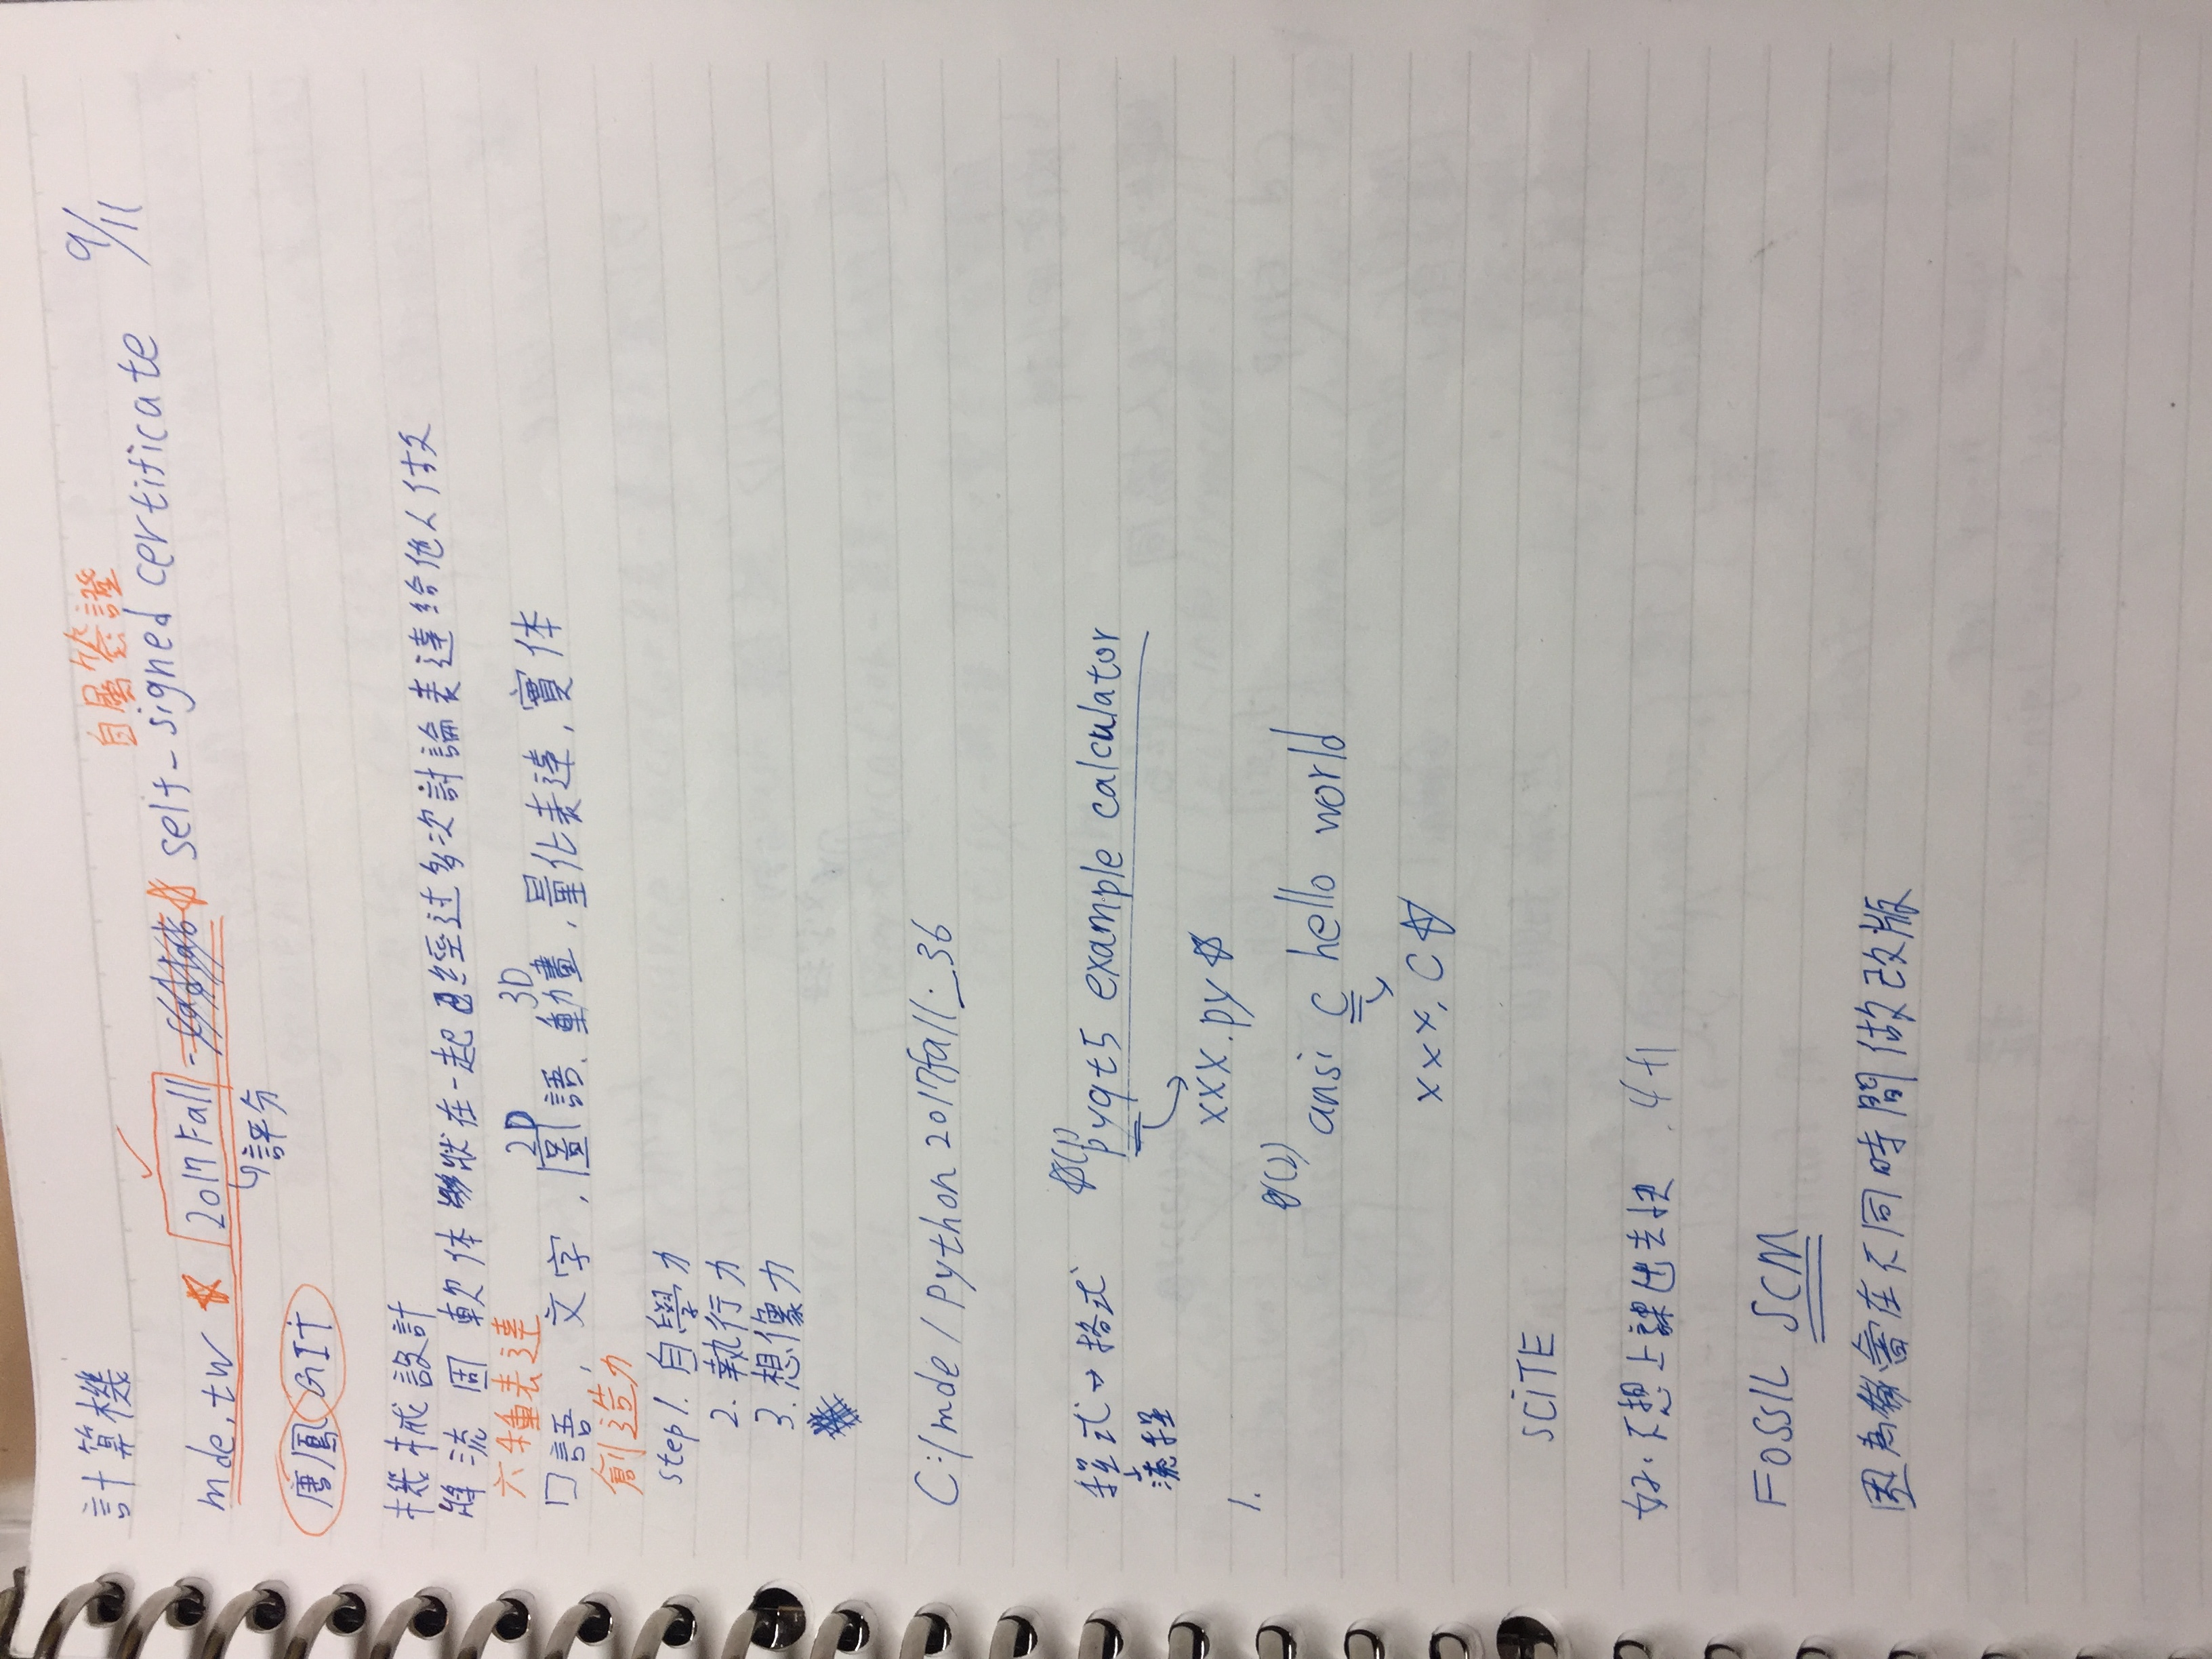 計算機
9/11
自屬簽證
mde.tw 2017Fall - self-signed certificate
評分
唐鳳 GIT
機械設計
將流固軟体狀在一起經过多次討論表達給他人做
六種表達
2D 3D
口語, 文字, 圖語、動畫, 量化表達, 實体
創造力
step1. 自學力
2. 執行力
3. 想像力
C:/mde/python2017fall_36
程式→格式
流程
(1) pyqt5 example calculator
xxx.py
1.
(2) ansi c hello world
xxx.C
SCiTE
好:不想上課出去 4+1
FOSSIL SCM
因為會在不同時間做改版